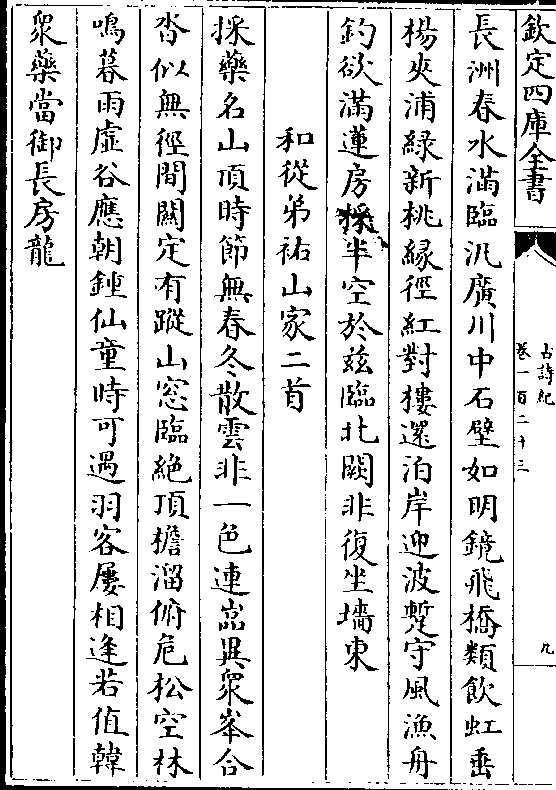 欽定四庫全書
古詩紀
卷一百二十三
九
長洲春水滿臨汎廣川中石壁如明鏡飛橋類飲虹垂
楊夾浦綠新桃縁徑紅對樓還泊岸迎波蹔守風漁舟
釣欲滿蓮房採半空於兹臨北闕非復坐墻東
和從弟祐山家二首
採藥名山頂時節無春冬散雲非一色連嵓異衆峯合
沓似無徑間關定有蹤山窓臨絶頂檐溜俯危松空林
鳴暮雨虛谷應朝鍾仙童時可遇羽客屢相逢若值韓
衆藥當御長房龍